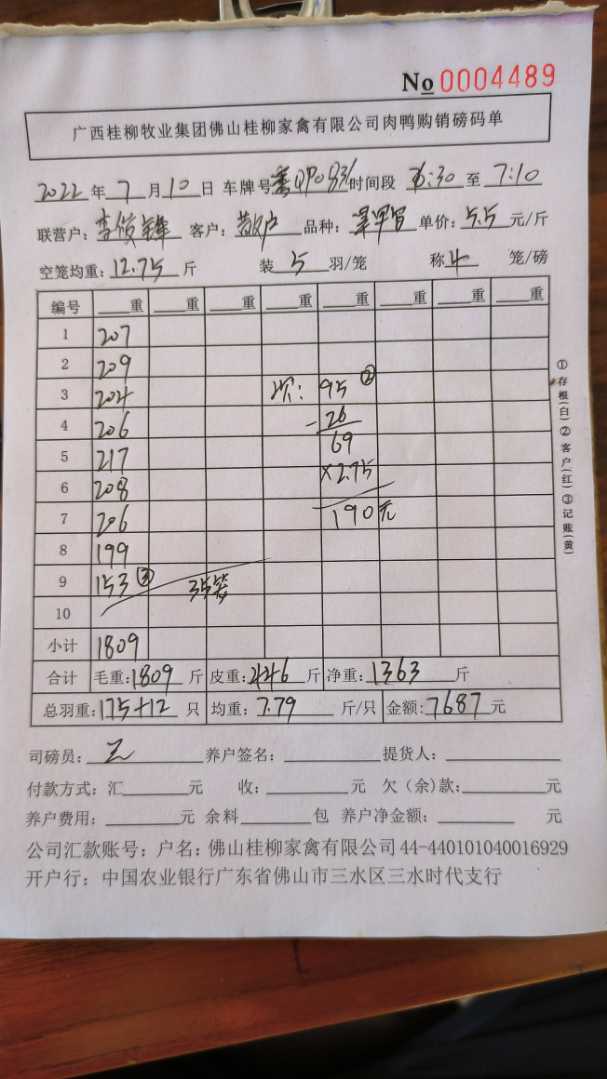 No 0004489
广西桂柳牧业集团佛山桂柳家禽有限公司肉鸭购销磅码单
2022 年 7 月 10 日 车牌号 时间段 6:30 至 7:10
联营户: 客户: 散户 品种: 单价: 5.5 元/斤
空笼均重: 12.75 斤 装 5 羽/笼 称 4 笼/磅
编号 重 重 重 重 重 重 重 重
1 207
2 209
3 204 次: 95 ②
4 206 -26
5 217 69
6 208 ×2.75
7 206 190元
8 199
9 153 ③ 35笼
10
小计 1809
合计 毛重: 1809 斤 皮重: 446 斤 净重: 1363 斤
总羽重: 175+12 只 均重: 7.79 斤/只 金额: 7687 元
司磅员: 养户签名: 提货人:
付款方式: 汇 元 收: 元 欠(余)款: 元
养户费用: 元 余料 包 养户净金额: 元
公司汇款账号: 户名: 佛山桂柳家禽有限公司 44-440101040016929
开户行: 中国农业银行广东省佛山市三水区三水时代支行
①存根(白)②客户(红)③记账(黄)